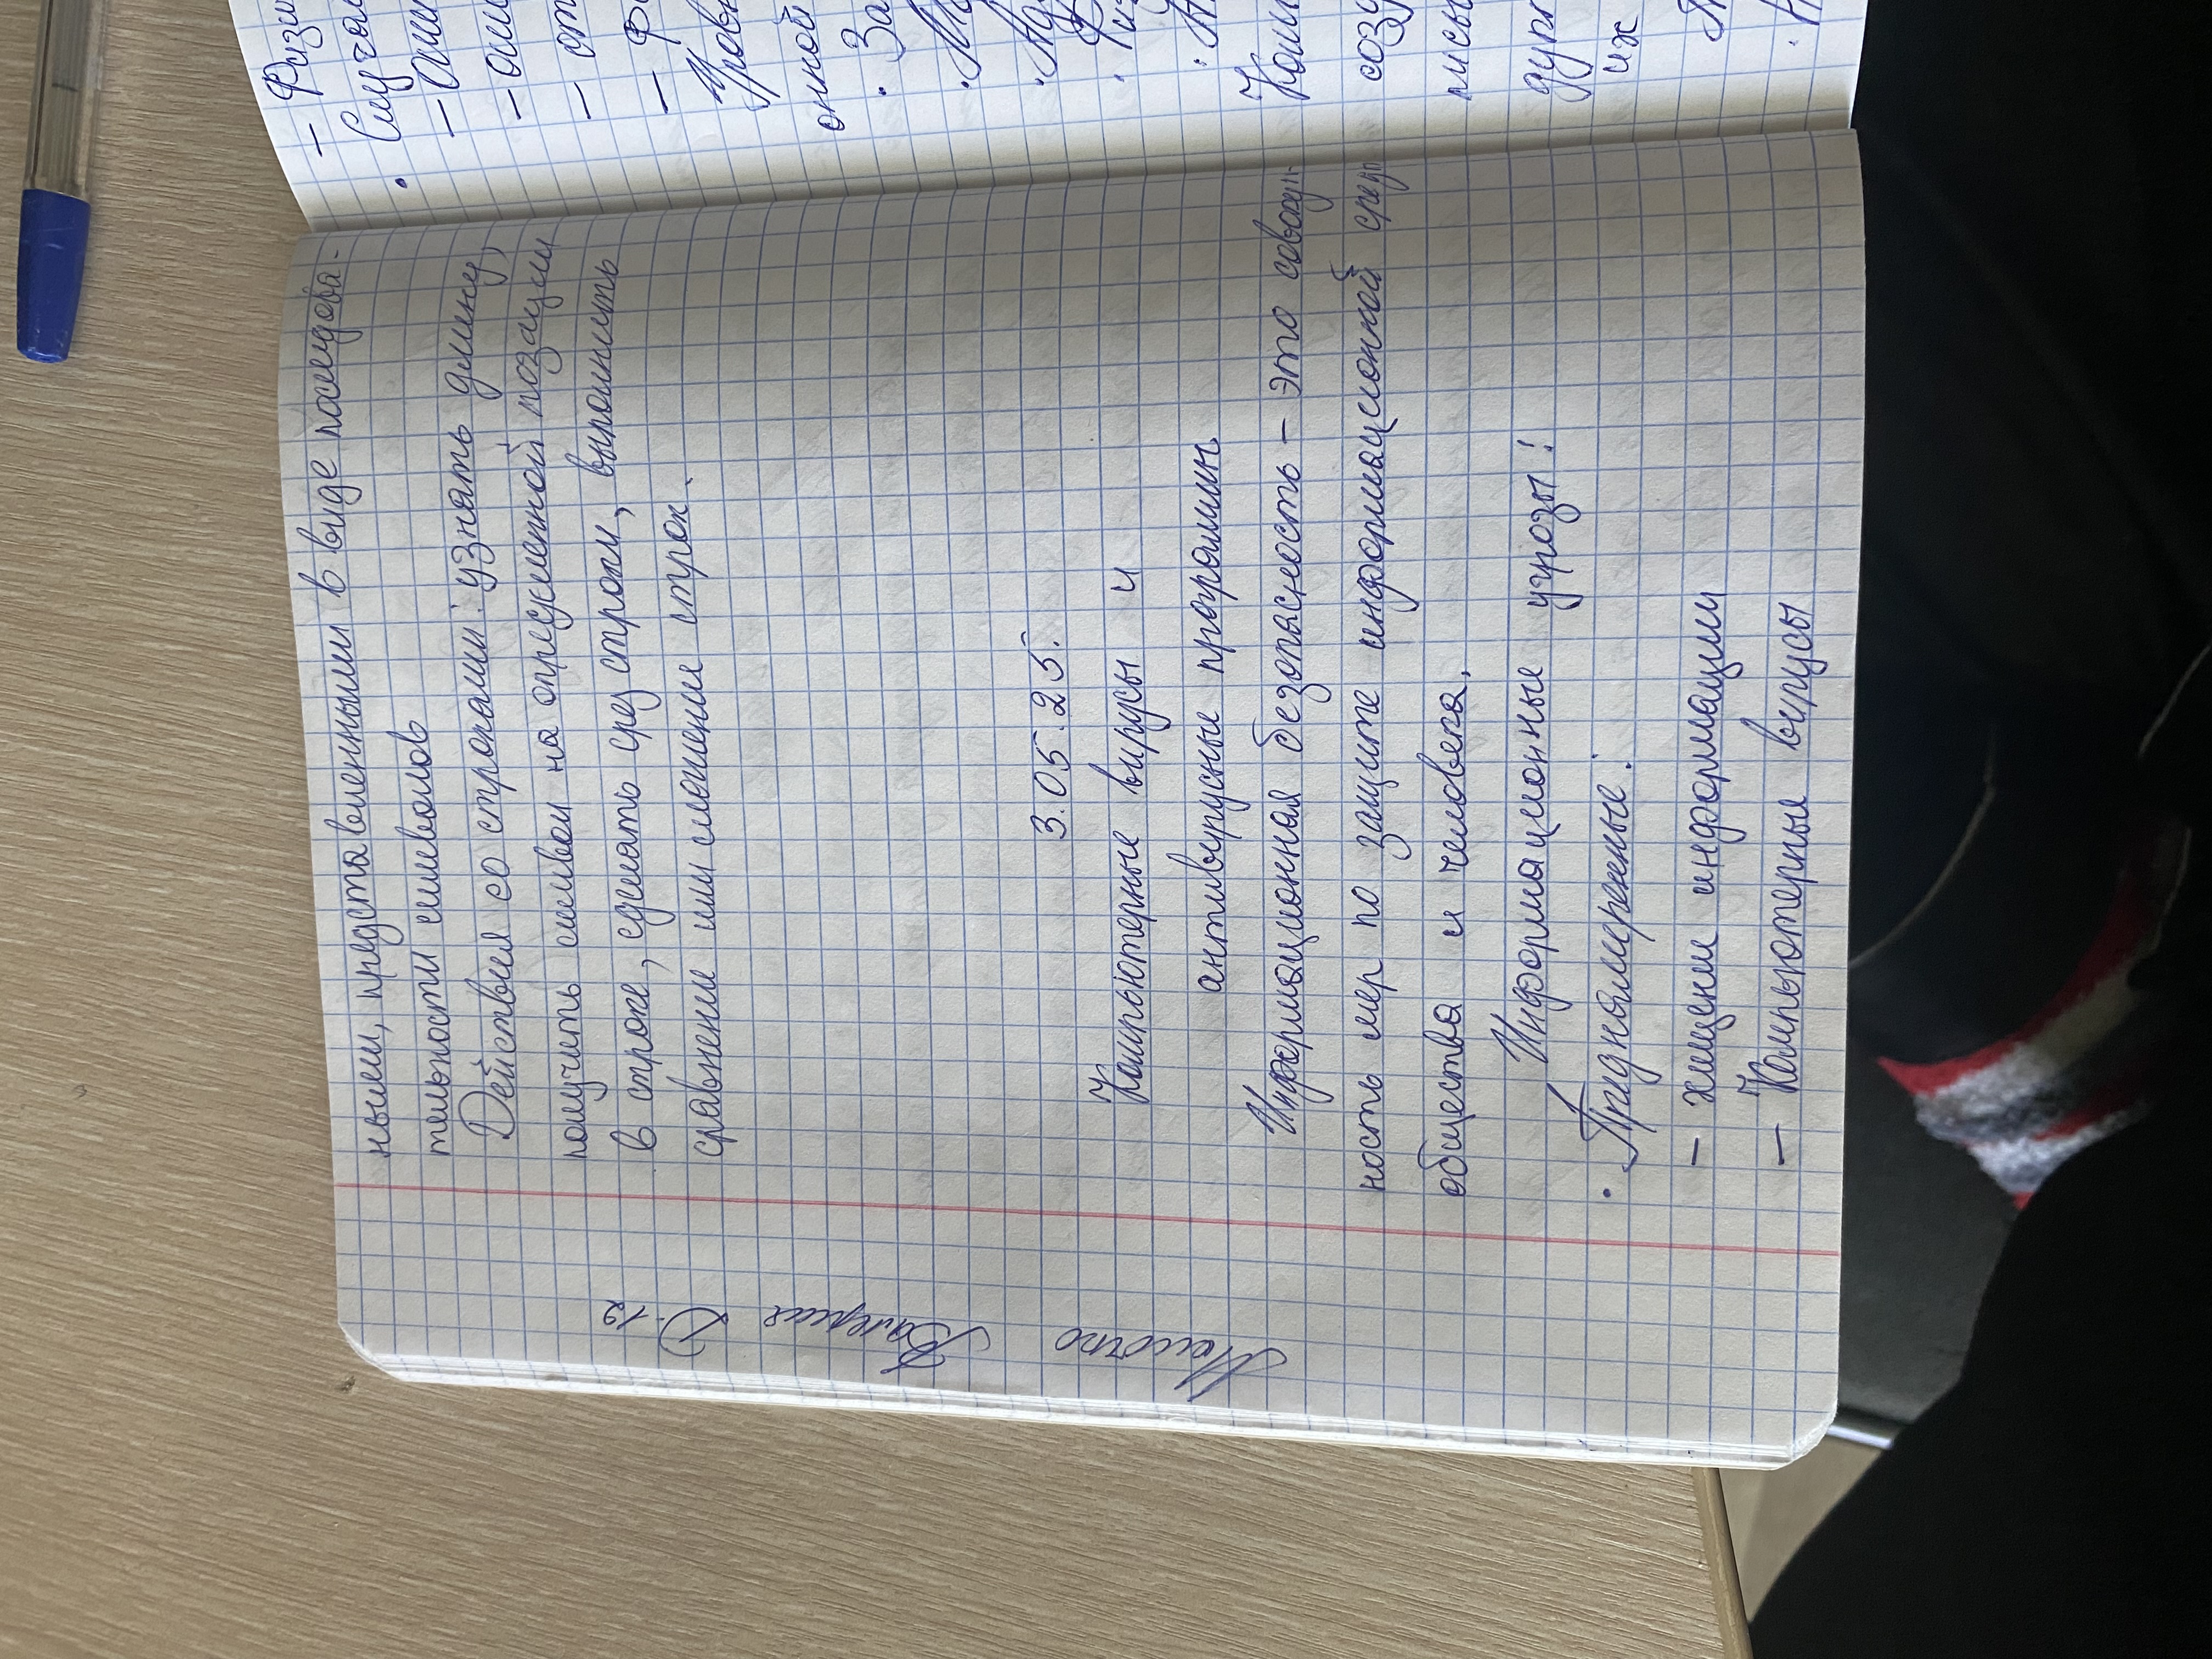 ными, представленными в виде последова-
тельности символов
Действия со строками: узнать длину,
получить символ на определенной позиции
в строке, сделать срез строки, выполнить
сравнение или сложение строк.
3.05.25.
Компьютерные вирусы и
антивирусные программы
Информационная безопасность - это совокуп-
ность мер по защите информационной среды
общества и человека.
Информационные угрозы:
• Преднамеренные:
- хищение информации
- Компьютерные вирусы
Валерия
- Физи
• Случай
- оши
- ста
- фо
Уровн
онной
• За
Комп
созд
писы
дупл
их